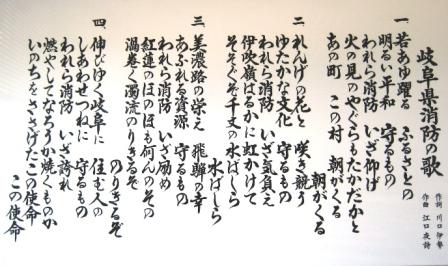 岐阜県消防の歌
作詞 川口伊勢
作曲 江口夜詩
一、若あゆ躍る ふるさとの
明るい平和 守るもの
われら消防 いざ仰げ
火の見のやぐらもたかだかと
あの町 この村 朝がくる
朝がくる
二、れんげの花と 咲き競う
ゆたかな文化 守るもの
われら消防 いざ気負え
伊吹嶺はるかに虹かけて
そそぐぞ千丈の水ばしら
水ばしら
三、美濃路の栄え 飛騨の幸
あふれる資源 守るもの
われら消防 いざ励め
紅蓮のほのほも何んのその
渦巻く濁流のりきるぞ
のりきるぞ
四、伸びゆく岐阜に 住む人の
しあわせつねに 守るもの
われら消防 いざ誇れ
燃やしてなろうか焼くものか
いのちをささげたこの使命
この使命